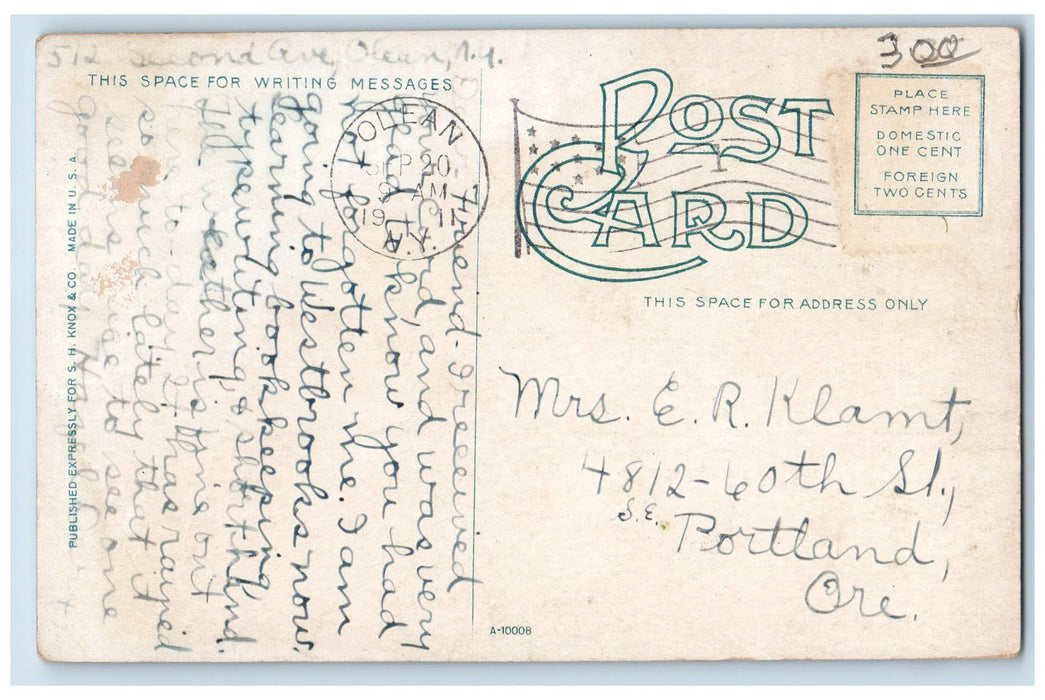 512 Second Ave, Olean, N.Y.
300
THIS SPACE FOR WRITING MESSAGES
POST CARD
PLACE
STAMP HERE
DOMESTIC
ONE CENT
FOREIGN
TWO CENTS
OLEAN
N.Y.
SEP 20
9 AM
1911
THIS SPACE FOR ADDRESS ONLY
Friend- I received
your Card, and was very
glad to know you had
not forgotten me. I am
going to Westbrooks now.
learning bookkeeping
typewriting, & shorthand.
The weather is fine out
here to-day. It has rained
so much lately that it
seems nice to see one
good day.
Mrs. E. R. Klamt,
4812-60th St.,
S.E. Portland,
Ore.
PUBLISHED EXPRESSLY FOR S. H. KNOX & CO. MADE IN U. S. A.
A-10008